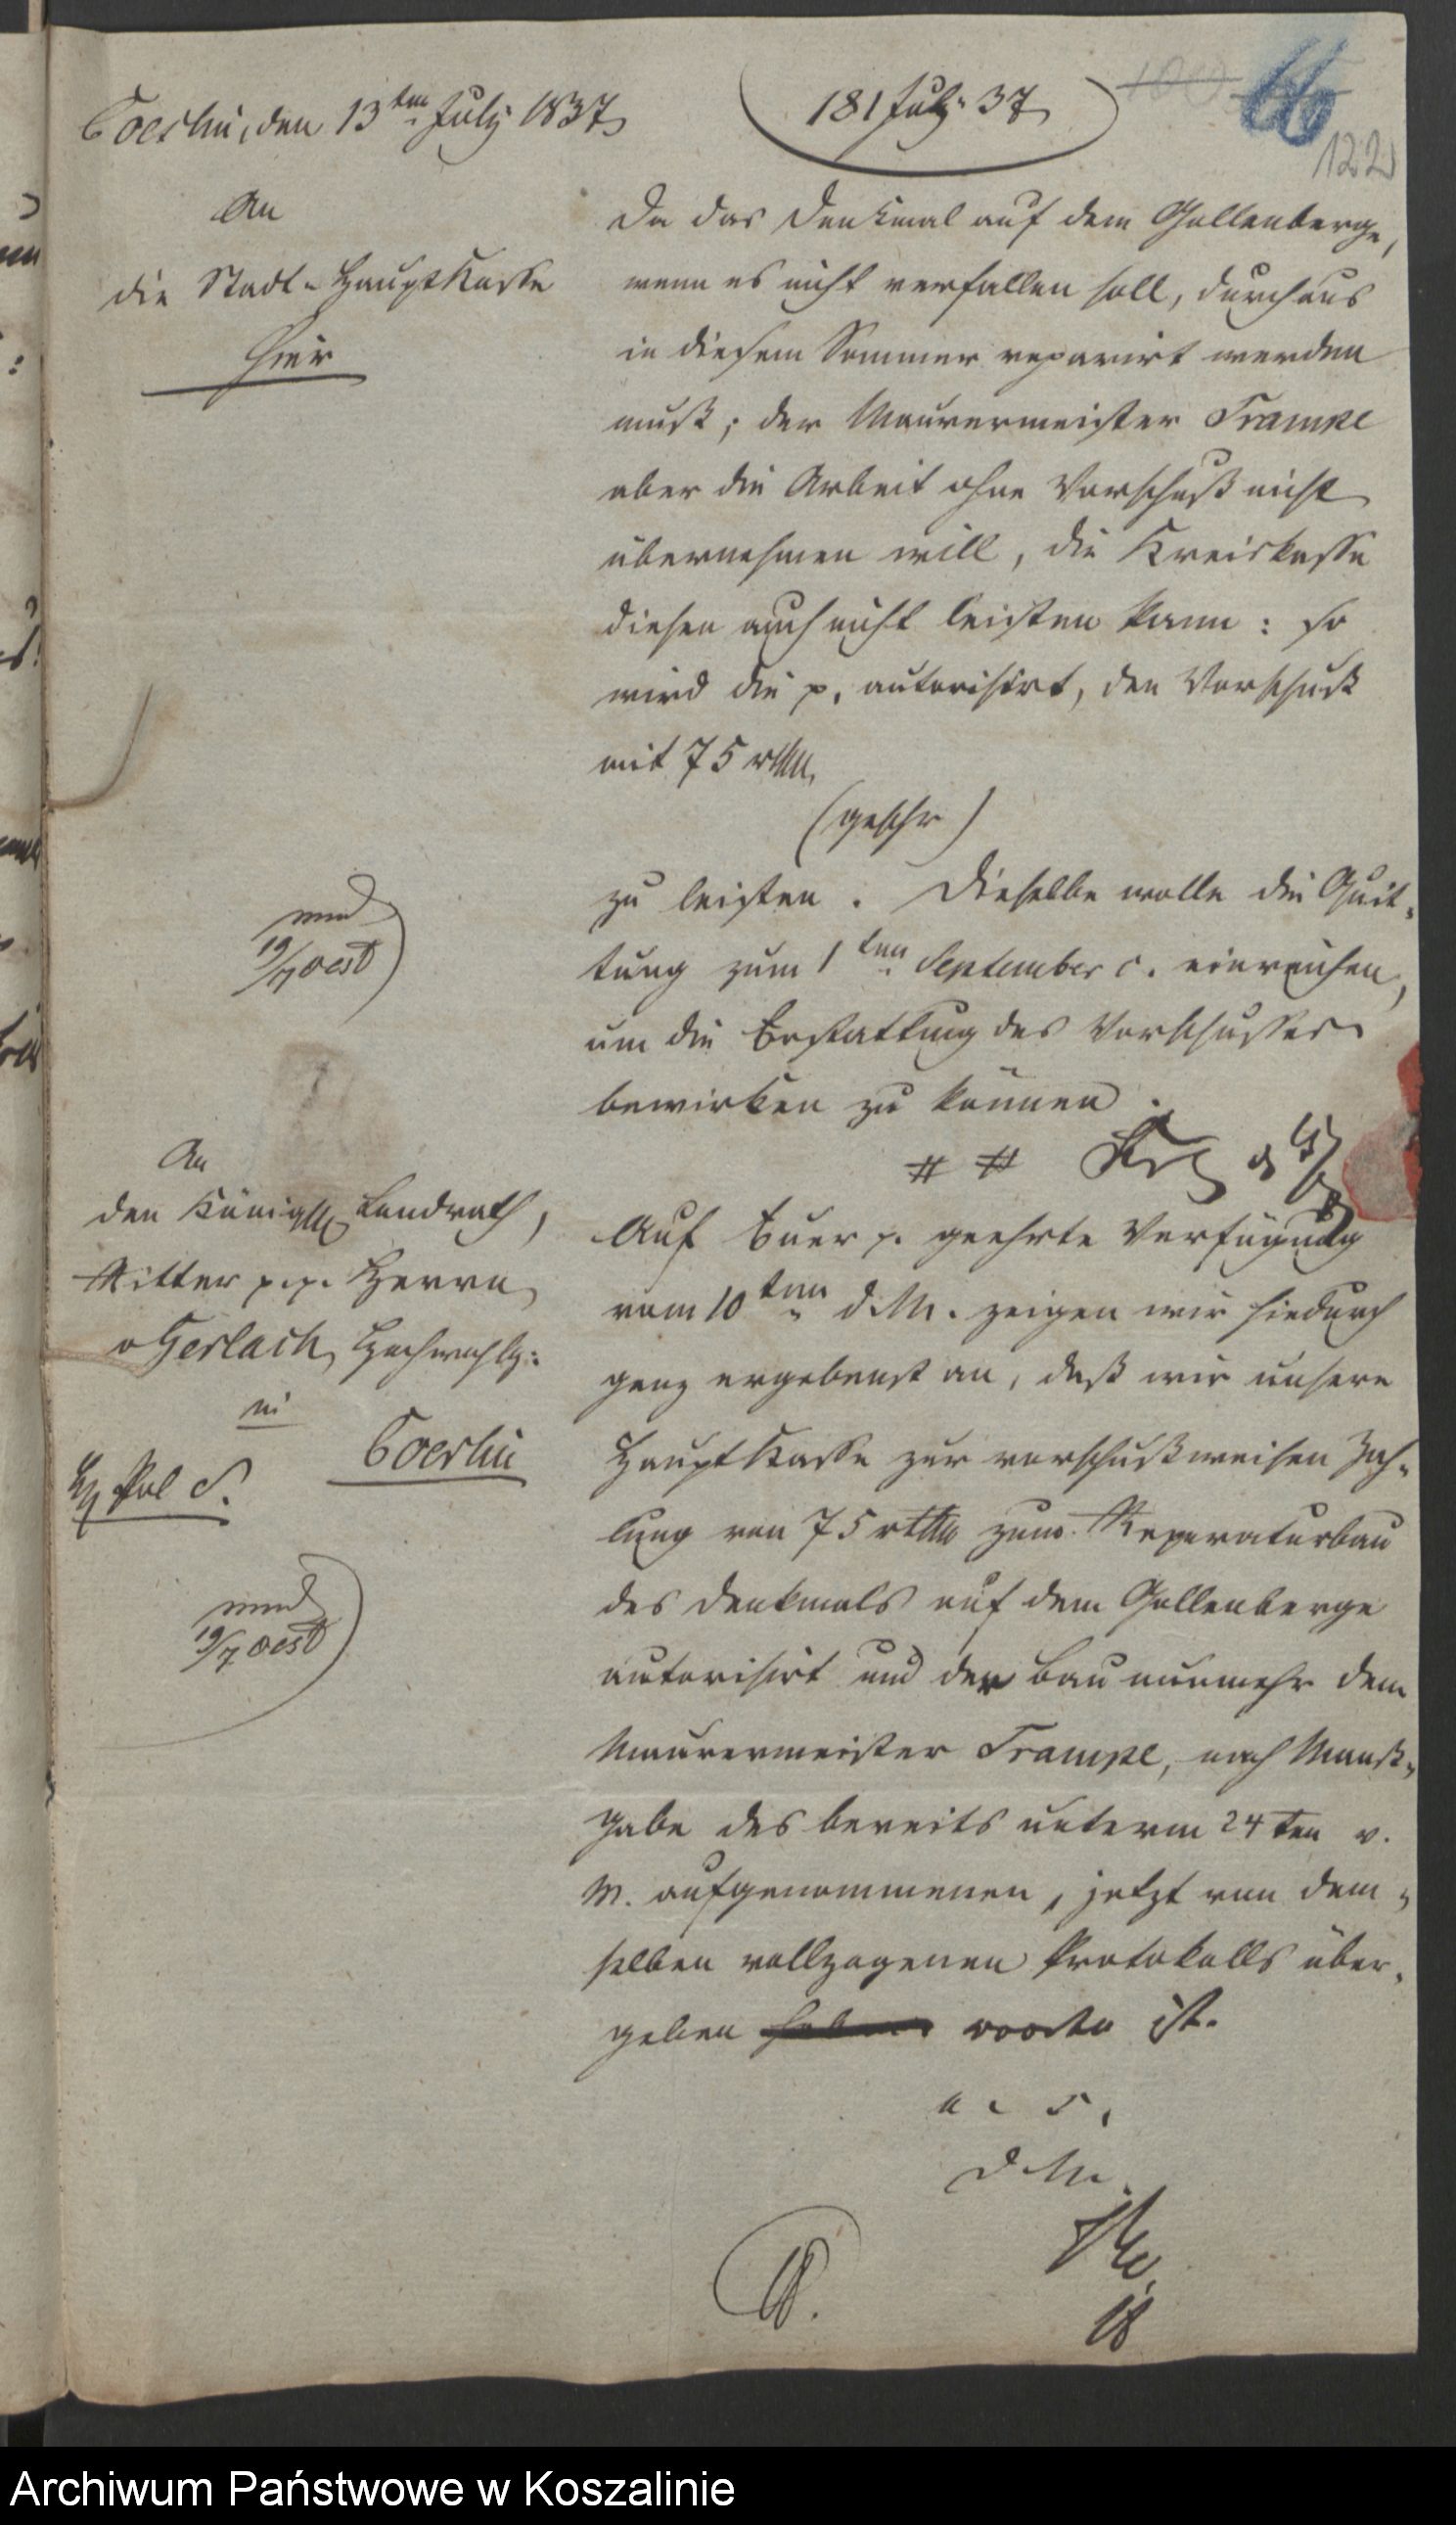 Coeslin, den 13ten July 1837
181 July 37
66
122
An
die Stadt-HauptKasse
hier
Da das Denkmal auf dem Gollenberge,
wenn es nicht verfallen soll, durchaus
in diesem Sommer reparirt werden
muß; der Maurermeister Trampe
aber die Arbeit ohne Vorschuß nicht
übernehmen will, die Kreiskasse
diesen auch nicht leisten kann: so
wird die p. autorisirt, den Vorschuß
mit 75 rthlr.
(geschr)
zu leisten. Dieselbe wolle die Quit-
tung zum 1ten September c. einreichen,
um die Erstattung des Vorschusses
bewirken zu können.
mund
19/7 Oest
An
den Königl. Landrath,
Ritter p.p. Herrn
v Gerlach, Hochwohlg:
in
Coeslin
Pol S.
Auf Euer p. geehrte Verfügung
vom 10ten d. M. zeigen wir hiedurch
ganz ergebenst an, daß wir unsere
HauptKasse zur vorschußweisen Zah-
lung von 75 rthlr zum Reparaturbau
des Denkmals auf dem Gollenberge
autorisirt und der Bau nunmehr dem
Maurermeister Trampe, nach Maaß-
gabe des bereits unterm 24ten v.
M. aufgenommenen, jetzt von dem-
selben vollzogenen Protokolls über-
geben worden ist.
mund
19/7 Oest
d. M.
18
Archiwum Państwowe w Koszalinie